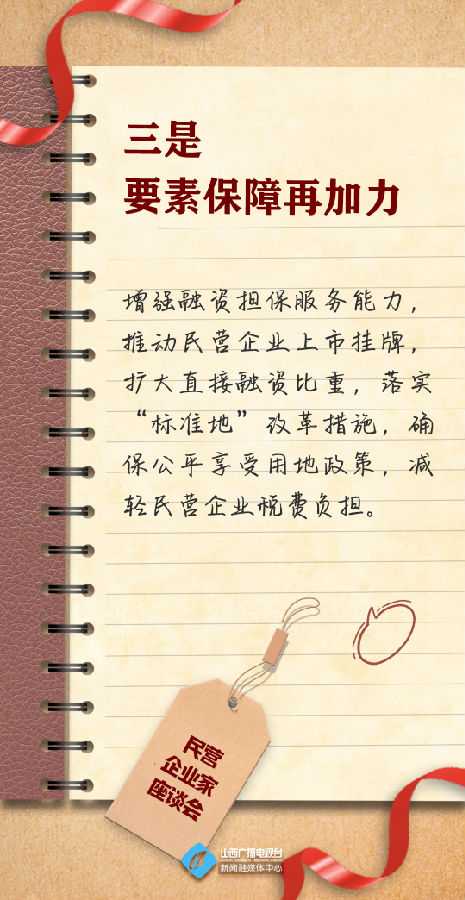 三是
要素保障再加力
增强融资担保服务能力，
推动民营企业上市挂牌，
扩大直接融资比重，落实
“标准地”改革措施，确
保公平享受用地政策，减
轻民营企业税费负担。
民营
企业家
座谈会
山西广播电视台
新闻融媒体中心